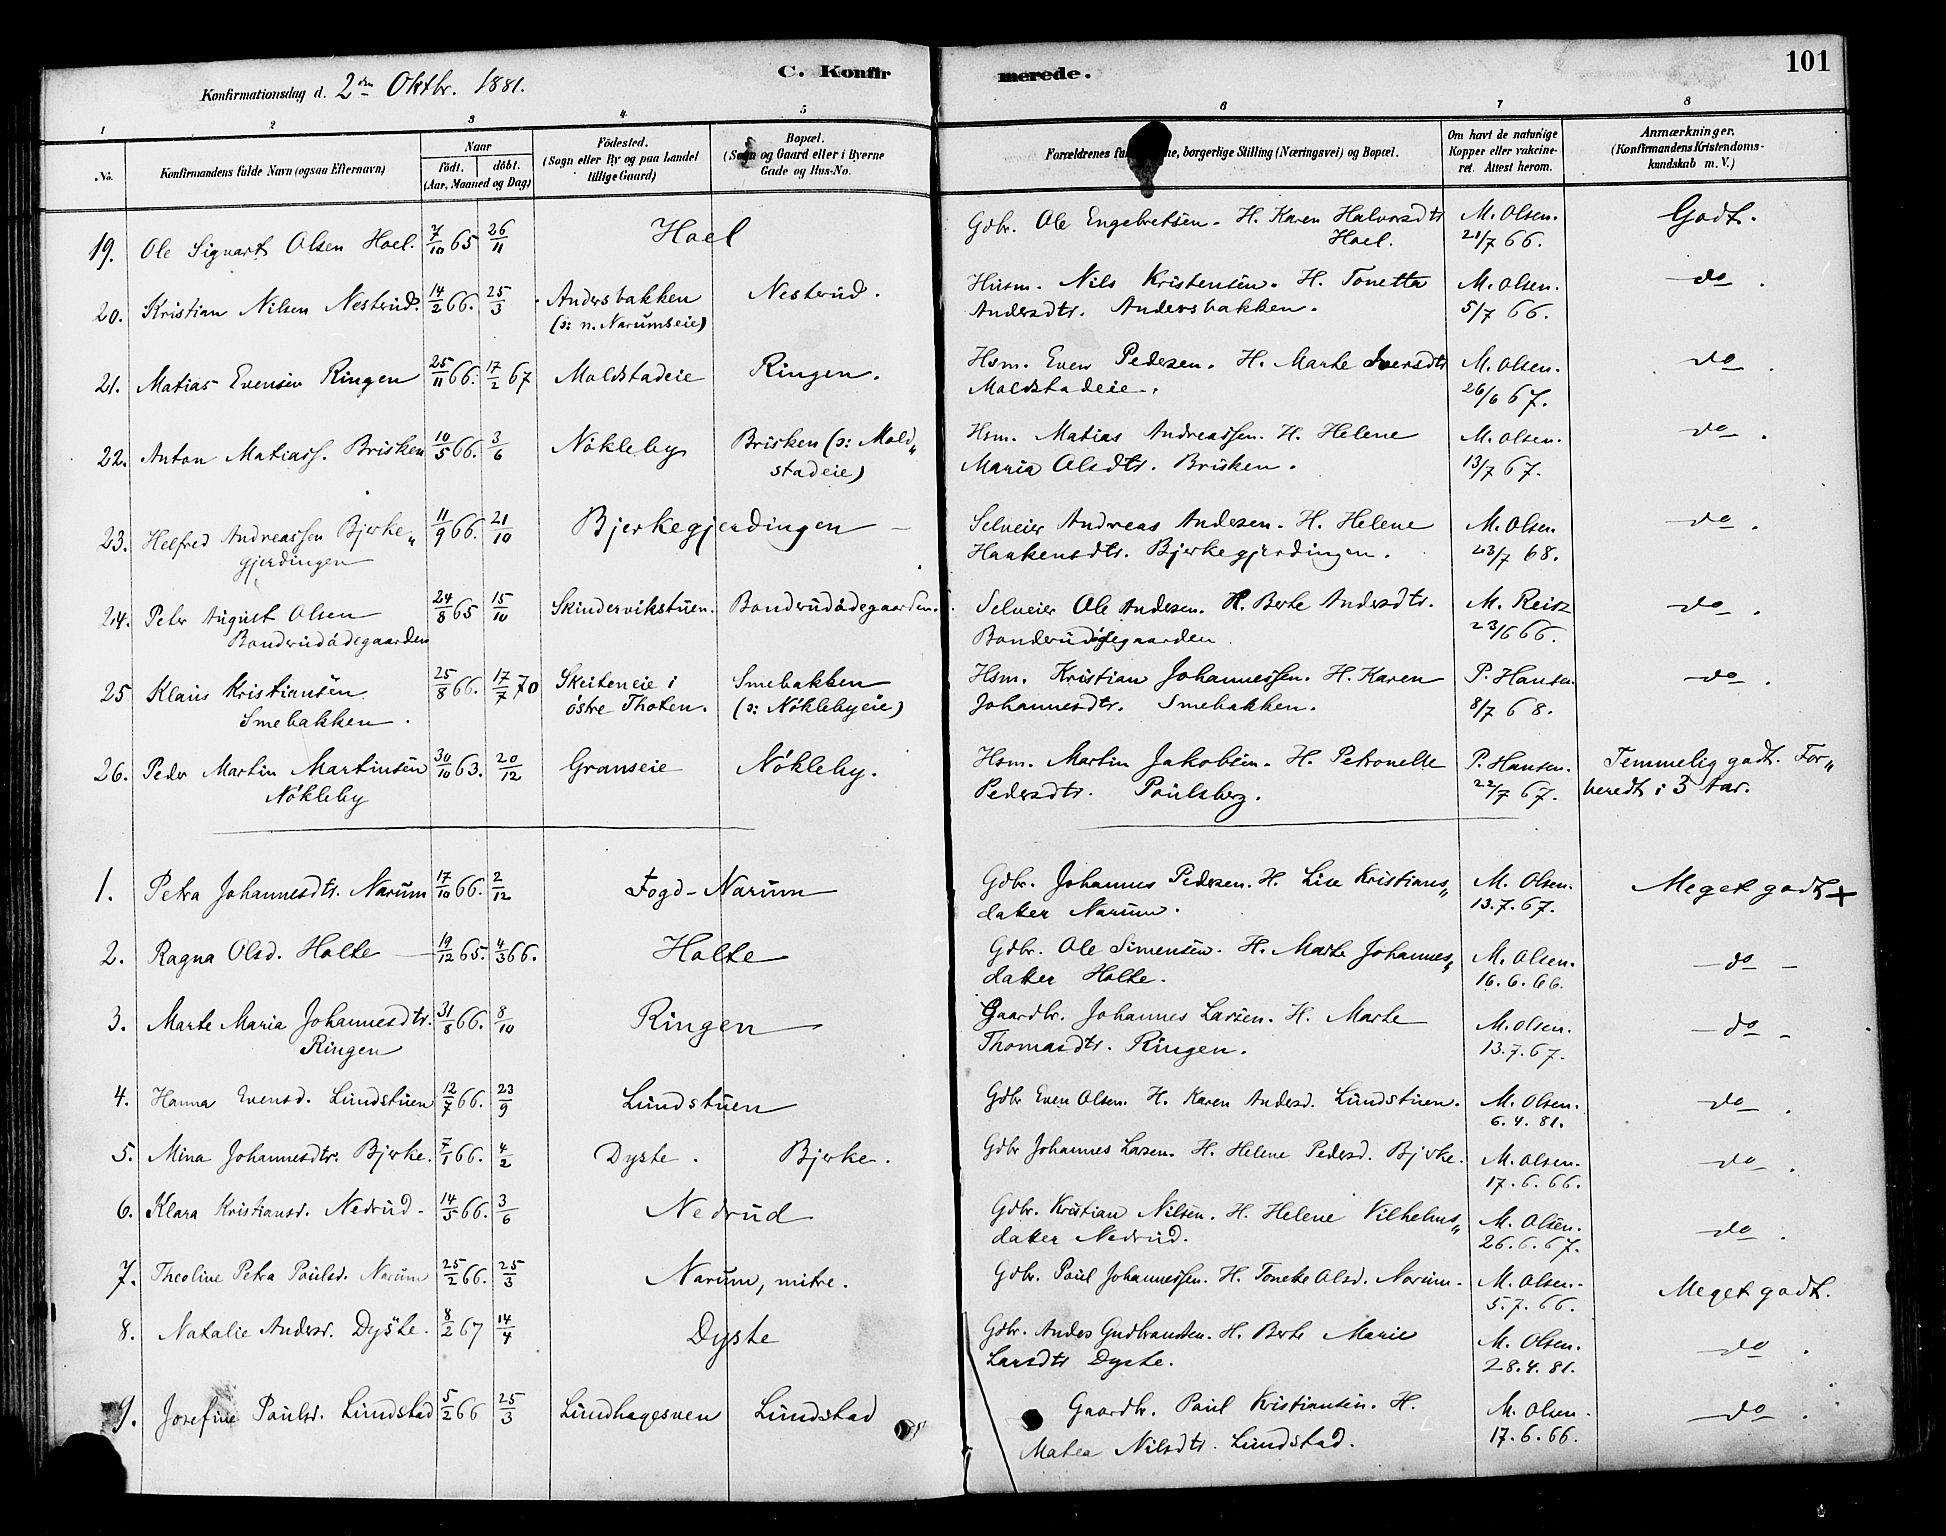 C. Konfirmerede. 101
Konfirmationsdag d. 2den Oktbr. 1881.
1 2 3 4 5 6 7 8
No. Konfirmandens fulde Navn (ogsaa Efternavn) Naar födt. döbt. (Aar, Maaned og Dag) Födested. (Sogn eller By og paa Landet tillige Gaard) Bopæl. (Sogn og Gaard eller i Byerne Gade og Hus-No. Forældrenes fulde Navne, borgerlige Stilling (Næringsvei) og Bopæl. Om havt de naturlige Kopper eller vakcineret. Attest herom. Anmærkninger. (Konfirmandens Kristendomskundskab m. V.)
19. Ole Sigvart Olsen Hoel. 7/10 65 26/11 Hoel Gdbr. Ole Engebretsen. H. Karen Halvorsdtr M. Olsen. Godt.
Hoel. 21/7 66.
20. Kristian Nilsen Nesterud. 14/2 66. 25/3 Andersbakken Nesterud. Husm. Nils Kristensen. H. Tonetta M. Olsen. do.
(ɔ: n. Narumseie) Andersdtr. Andersbakken. 5/7 66.
21. Matias Evensen Ringen 25/11 66. 17/2 67 Moldstadeie Ringen. Hsm. Even Pedersen. H. Marte Iversdtr M. Olsen. do.
Moldstadeie. 26/6 67.
22. Anton Matiass. Brisken 10/5 66. 3/6 Nökleby Brisken (ɔ: Mold„ Hsm. Matias Andreassen. H. Helene M. Olsen. do.
stadeie) Maria Olsdtr. Brisken. 13/7 67.
23. Helfred Andreassen Bjerke„ 11/9 66. 21/10 Bjerkegjerdingen Selveier Andreas Andersen. H. Helene M. Olsen do.
gjerdingen Haakensdtr. Bjerkegjerdingen. 23/7 68.
24. Peter August Olsen 24/8 65 15/10 Skindervikstuen. Bonderudödegaarden. Selveier Ole Andersen. H. Berte Andersdtr. M. Reisz do.
Bonderudödegaarden Bonderudödegaarden. 23/6 66.
25 Klaus Kristiansen 25/8 66. 17/7 70 Skeiteneie i Smebakken Hsm. Kristian Johannessen. H. Karen P. Hansen. do.
Smebakken. östre Thoten. (ɔ: Nöklebyeie) Johannesdtr. Smebakken. 8/7 68.
26. Peder Martin Martinsen 30/10 63. 20/12 Granseie Nökleby. Hsm. Martin Jakobsen. H. Petronelle P. Hansen. Temmelig godt. For„
Nökleby Pedersdtr. Paulsberg. 22/7 67. beredt i 3 Aar.
1. Petra Johannesdtr. Narum 17/10 66. 2/12 Fogd-Narum Gdbr. Johannes Pedersen. H. Lise Kristians„ M. Olsen. Meget godt +
datter Narum. 13.7.67.
2. Ragna Olsd. Holte 19/12 65. 4/3 66. Holte Gdbr. Ole Simensen. H. Marte Johannes„ M. Olsen. do
datter Holte. 16.6.66.
3. Marte Maria Johannesdtr. 31/8 66. 8/10 Ringen Gaardbr. Johannes Larsen. H. Marte M. Olsen. do
Ringen Thomasdtr. Ringen. 13.7.67.
4. Hanna Evensd. Lundstuen 12/7 66. 23/9 Lundstuen Gdbr Even Olsen. H. Karen Andersd. Lundstuen. M. Olsen. do.
6.4.81.
5. Mina Johannesdtr. Bjerke. 7/1 66. 4/2 Dyste. Bjerke. Gdbr Johannes Larsen. H. Helene Pedersd. Bjerke. M. Olsen. do.
17.6.66.
6. Klara Kristiansd. Nedrud. 14/5 66. 3/6 Nedrud Gdbr. Kristian Nilsen. H. Helene Vilhelms„ M. Olsen. do.
datter Nedrud. 26.6.67.
7. Theoline Petra Paulsd. Narum 25/2 66. 25/3 Narum, mitre. Gdbr. Paul Johannessen. H. Tonette Olsd. Narum. M. Olsen. Meget godt.
5.7.66.
8. Natalie Andersd. Dyste. 8/2 67 14/4 Dyste Gdbr. Andes Gudbrandsen. H. Berte Marie M. Olsen. do.
Larsdtr Dyste. 28.4.81.
9. Josefine Paulsd. Lundstad 5/2 66 25/3 Lundhagesveen Lundstad Gaardbr. Paul Kristiansen. H. M. Olsen. do.
Matea Nilsdtr. Lundstad. 17.6.66.